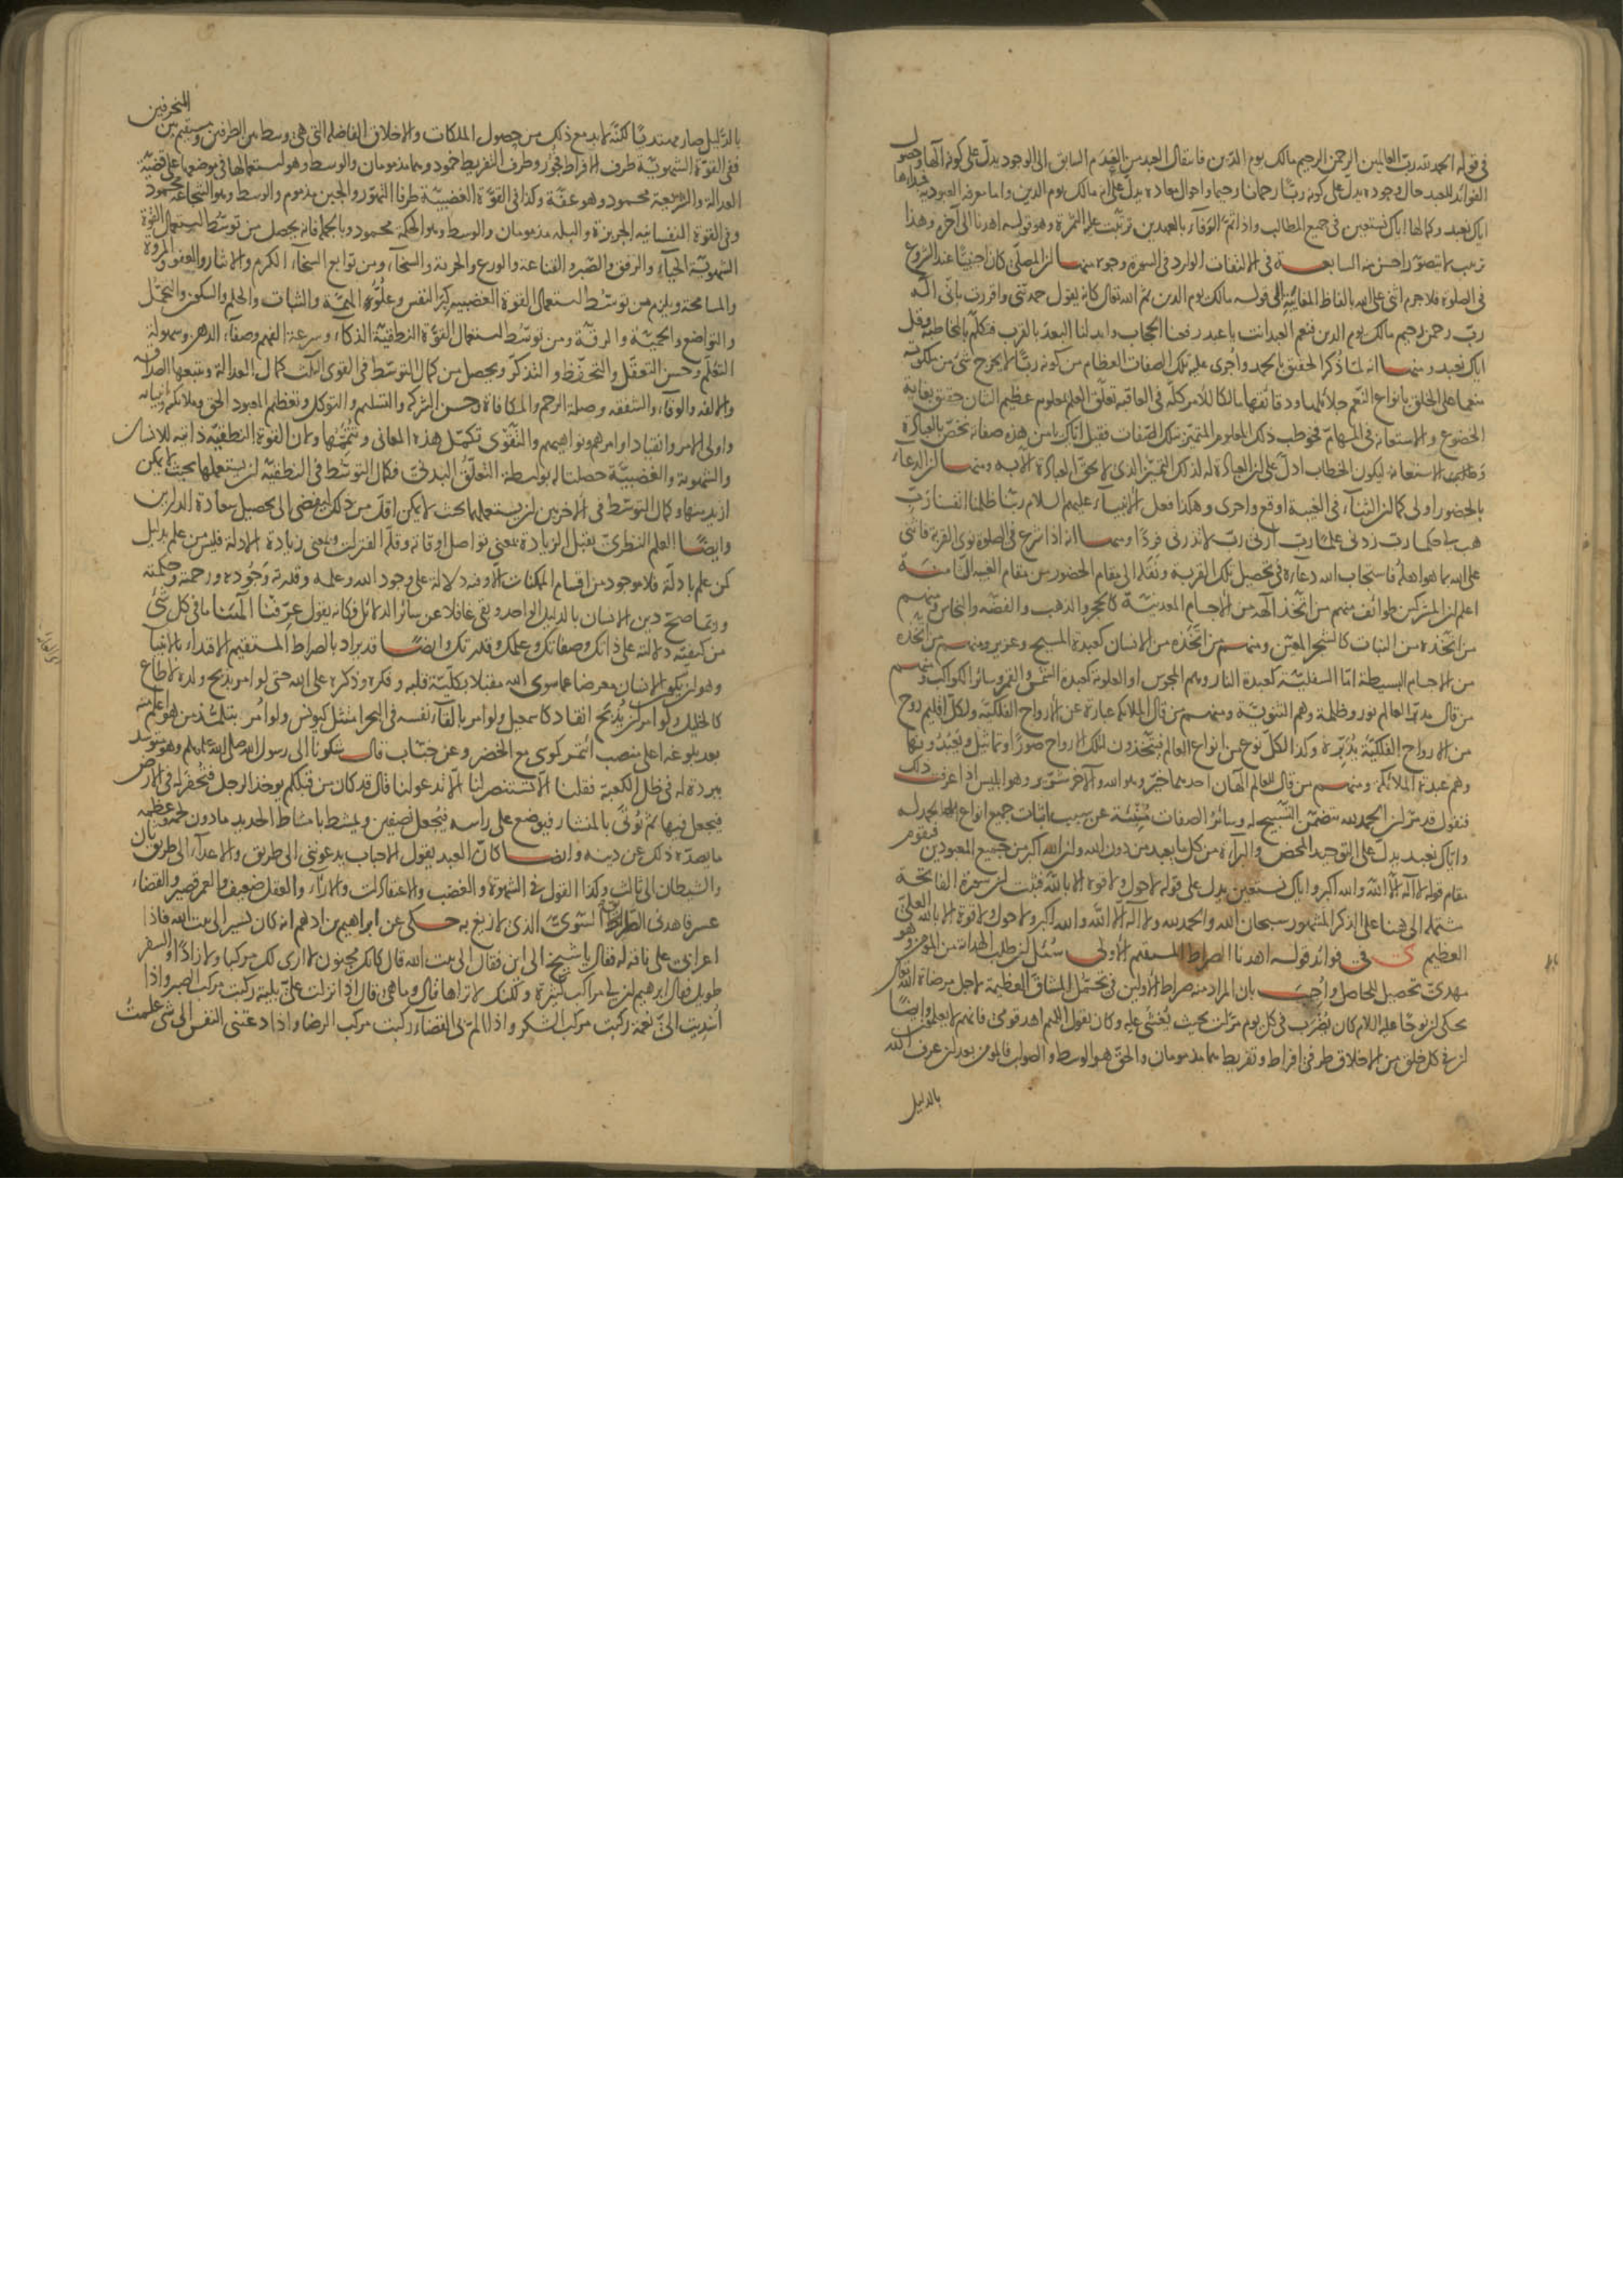 في قوله الحمد لله رب العالمين الرحمن الرحيم مالك يوم الدين فانتقال العبد من العدم السابق الى الوجود يدل على كونه الها وحصول
الفوائد للعبد حال وجوده يدل على كونه ربا رحمانا رحيما واحوال معاده يدل على انه مالك يوم الدين واما معرفة العبودية فمبداها
اياك نعبد وكمالها اياك نستعين في جميع المطالب واذا تم الوفاء بالعهدين ترتبت عليه الثمرة وهو قوله اهدنا الى آخره وهذا
ترتيب لا يتصور احسن منه السابعة في الالتفات الوارد في السورة وجوه منها ان المصلي كان اجنبيا عند الشروع
في الصلوة فلا جرم اثنى على الله بالفاظ المغايبة الى قوله مالك يوم الدين ثم الله تعالى كانه يقول حمدتني واقررت باني اله
رب رحمن رحيم مالك يوم الدين فنعم العبد انت يا عبد رفعنا الحجاب وابدلنا البعد بالقرب فتكلم بالمخاطبة وقل
اياك نعبد ومنها انه لما ذكر الحقيق بالحمد واجرى عليه تلك الصفات العظام من كونه ربا لا يخرج شئ من ملكوته
منعما على الخلق بانواع النعم جلائلها ودقائقها مالكا للامر كله في العاقبة تعلق العلم بمعلوم عظيم الشان حقيق بغاية
الخضوع والاستعانة في المهام فخوطب ذلك المعلوم المتميز بتلك الصفات فقيل اياك يا من هذه صفاته نخص بالعبادة
وطلب الاستعانة ليكون الخطاب ادل على ان العبادة له لذلك التميز الذي لا يحق العبادة الا به ومنها ان الدعاء
بالحضور اولى كما ان الثناء في الغيبة اوقع واحرى وهكذا فعل الانبياء عليهم السلام ربنا ظلمنا انفسنا رب
هب لي حكما رب زدني علما رب ارني رب لا تذرني فردا ومنها انه اذا شرع في الصلوة نوى القربة فاثنى
على الله بما هو اهله فاستجاب الله دعاءه في تحصيل تلك القربة ونقله الى مقام الحضور من مقام الغيبة الثامنة
اعلم ان المشركين طوائف منهم من اتخذ الهه من الاجسام المعدنية كالحجر والذهب والفضة والنحاس ومنهم
من اتخذه من النبات كالشجر المعين ومنهم من اتخذه من الانسان كعبدة المسيح وعزير ومنهم من اتخذه
من الاجسام البسيطة اما السفلية كعبدة النار وهم المجوس او العلوية كعبدة الشمس والقمر وسائر الكواكب ومنهم
من قال مدبر العالم نور وظلمة وهم الثنوية ومنهم من قال الملائكة عبارة عن الارواح الفلكية ولكل اقليم روح
من الارواح الفلكية يدبره وكذا لكل نوع من انواع العالم فيتخذون لتلك الارواح صورا وتماثيل ويعبدونها
وهم عبدة الملائكة ومنهم من قال للعالم الهان احدهما خير وهو الله والآخر شرير وهو ابليس اذا عرفت ذلك
فنقول قد مر ان الحمد لله يتضمن التسبيح له وسائر الصفات منبئة عن سبب اثبات جميع انواع المحامد له
واياك نعبد يدل على التوحيد المحض والبراءة من كل ما يعبد من دون الله وان الله اكبر من جميع المعبودين فيقوم
مقام قوله لا اله الا الله والله اكبر واياك نستعين يدل على قوله لا حول ولا قوة الا بالله فثبت ان سورة الفاتحة
مشتملة الى ههنا على الذكر المشهور سبحان الله والحمد لله ولا اله الا الله والله اكبر ولا حول ولا قوة الا بالله العلي
العظيم في فوائد قوله اهدنا الصراط المستقيم الاولى سئل ان طلب الهداية من المؤمن وهو
مهدي تحصيل للحاصل واجيب بان المراد منه صراط الاولين في تحمل المشاق العظيمة لاجل مرضاة الله
يحكى ان نوحا عليه السلام كان يضرب في كل يوم مرات بحيث يغشى عليه وكان يقول اللهم اهد قومي فانهم لا يعلمون وايضا
ان في كل خلق من الاخلاق طرفي افراط وتفريط هما مذمومان والحق هو الوسط والصواب فالمؤمن بعد ان عرف الله
بالدليل
بالدليل صار مهتديا لكنه لا بد مع ذلك من حصول الملكات والاخلاق الفاضلة التي هي وسط بين الطرفين ومستقيم بين المنحرفين
ففي القوة الشهوية طرف الافراط فجور وطرف التفريط خمود وهما مذمومان والوسط وهو استعمالها في موضعها على قضية
العدالة والشريعة محمود وهو عفة وكذا في القوة الغضبية طرفا التهور والجبن مذموم والوسط وهو الشجاعة محمود
وفي القوة النفسانية الجربزة والبله مذمومان والوسط وهو الحكمة محمود وبالجملة فانه يحصل من توسط استعمال القوة
الشهوية الحياء والرفق والصبر والقناعة والورع والحرية والسخاء ومن توابع السخاء الكرم والايثار والعفو والمروة
والمسامحة ويلزم من توسط استعمال القوة الغضبية كبر النفس وعلو الهمة والثبات والحلم والسكون والتحمل
والتواضع والحمية والرقة ومن توسط استعمال القوة النطقية الذكاء وسرعة الفهم وصفاء الذهن وسهولة
التعلم وحسن التعقل والتحفظ والتذكر ويحصل من كمال التوسط في القوى الثلث كمال العدالة ويتبعها الصداقة
والالفة والوفاء والشفقة وصلة الرحم والمكافاة وحسن الشركة والتسليم والتوكل وتعظيم المعبود الحق وملائكته وانبيائه
واولي الامر وانقياد اوامرهم ونواهيهم والتقوى تكمل هذه المعاني وتتممها ولان القوة النطقية ذاتية للانسان
والشهوية والغضبية حصلتا له بواسطة التعلق البدني فكمال التوسط في النطقية ان يستعملها بحيث لا يمكن
ازيد منها وكمال التوسط في الاخريين ان يستعملهما بحيث لا يمكن اقل من ذلك ليفضي الى تحصيل سعادة الدارين
وايضا العلم النظري يقبل الزيادة بمعنى تواصل اوقاته وقلة الفترات وبمعنى زيادة الادلة فليس من علم بدليل
كمن علم بادلة فلا موجود من اقسام الممكنات الا وفيه دلالة على وجود الله وعلمه وقدرته وجوده ورحمته وحكمته
وربما صح دين الانسان بالدليل الواحد وبقي غافلا عن سائر الدلائل فكانه يقول عرفنا الهنا ما في كل شئ
من كيفية دلالته على ذاتك وصفاتك وعلمك وقدرتك وايضا قد يراد بالصراط المستقيم الاقتداء بالانبيا
وهو ان يكون الانسان معرضا عما سوى الله مقبلا بكلية قلبه وفكره وذكره على الله حتى لو امر بذبح ولده لاطاع
كالخليل ولو امر بان يذبح انقاد كاسمعيل ولو امر بالقاء نفسه في البحر امتثل كيونس ولو امر بتلمذ من هو اعلم منه
بعد بلوغه اعلى منصب ائتمر كموسى مع الخضر وعن خباب قال شكونا الى رسول الله صلى الله عليه وسلم وهو متوسد
ببردة له في ظل الكعبة فقلنا الا تستنصر لنا الا تدعو لنا قال قد كان من قبلكم يوخذ الرجل فيحفر له في الارض
فيجعل فيها ثم يؤتى بالمنشار فيوضع على راسه فيجعل نصفين ويمشط بامشاط الحديد ما دون لحمه وعظمه
ما يصده ذلك عن دينه وايضا كان العبد يقول الاحباب يدعونني الى طريق والاعداء الى طريق ثان
والشيطان الى ثالث وكذا القول في الشهوة والغضب والاعتقادات والاراء والعقل ضعيف والعمر قصير والقضاء
عسر فاهدني الطريق السوي الذي لا ازيغ به حكى عن ابراهيم بن ادهم انه كان يسير الى بيت الله فاذا
اعرابي على ناقة له فقال يا شيخ الى اين فقال الى بيت الله قال كانك مجنون لا ارى لك مركبا ولا زادا والسفر
طويل فقال ابراهيم ان لي مراكب كثيرة ولكنك لا تراها قال وما هي قال اذا نزلت علي بلية ركبت مركب الصبر واذا
اسديت الي نعمة ركبت مركب الشكر واذا الم بي القضاء ركبت مركب الرضا واذا دعتني النفس الى شئ علمت